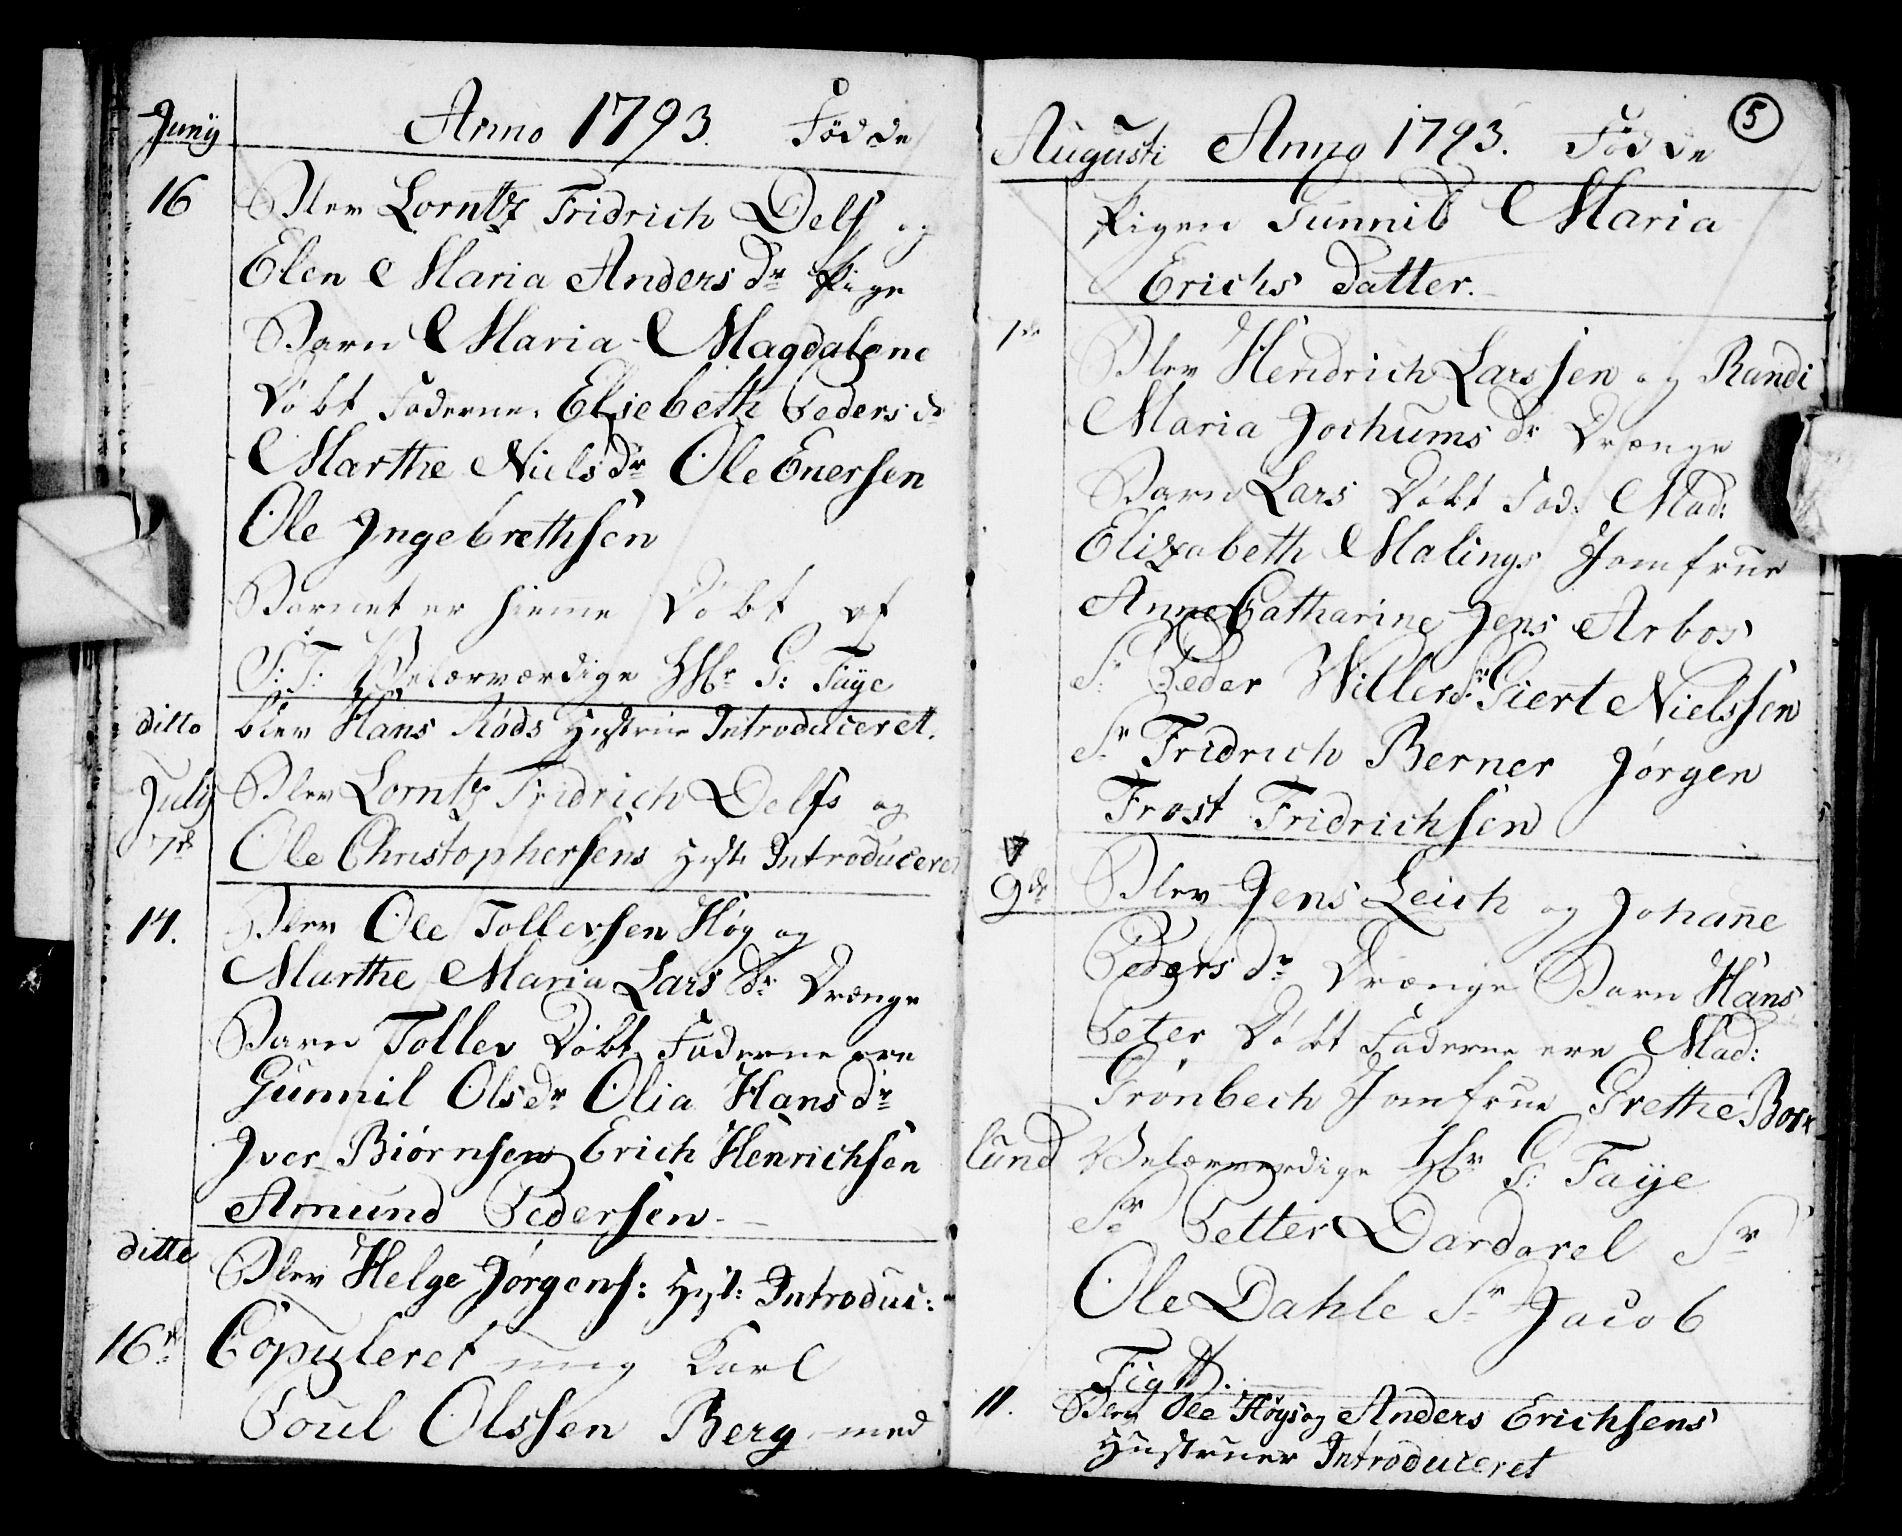 Junij Anno 1793. Födde
16 Blev Lorntz Fridrich Delfs og
Elen Maria Anders dr Pige
Barn Maria Magdalene
Döbt Faderne. Elsebeth Peders dr
Marthe Niels dr Ole Enersen
Ole Ingebrethsen
Barnet er hieme Döbt af
S: T: Velærværdige Hr G: Faÿe
ditto blev Hans Röds Hustrue Introduceret.
Julij Blev Lorntz Fridrich Delfs og
7de Ole Christophersens Hust: Introduceret
14. Blev Ole Tollevsen Høg og
Marthe Maria Lars dr Drænge
Barn Tollev Döbt Faderne ere
Gunnil Ols dr Olia Hans dr
Iver Biørnsen Erich Henrichsen
Amund Pedersen.
ditto Blev Helge Jørgens: Hust: Introduc:
16de Copuleret ung Karl
Poul Olssen Berg med
5
Augusti Anno 1793. Födde
Pigen Gunnild Maria
Erichs Datter.
1de Blev Hendrich Larssen og Randi
Maria Jochums dr Drænge
Barn Lars Döbt Fad: Mad:
Elizabeth Malings Jomfrue
Anne Catharine Jens Arbos
Sr Peder Willers Sr Giert Nielssen
Sr Fridrich Berner Jörgen
Frost Fridrichsen
9de Blev Jens Leich og Johane
Peders dr Drænge Barn Hans
Peter Döbt Faderne ere Mad:
Grönbech Jomfrue Grethe Bork
lund Velærværdige Hr G: Faÿe
Sr Petter Dardorel Sr
Ole Dahle Sr Jacob
Figtt.
11. Blev Ole Høgs og Anders Erichsens
Hustruer Introduceret